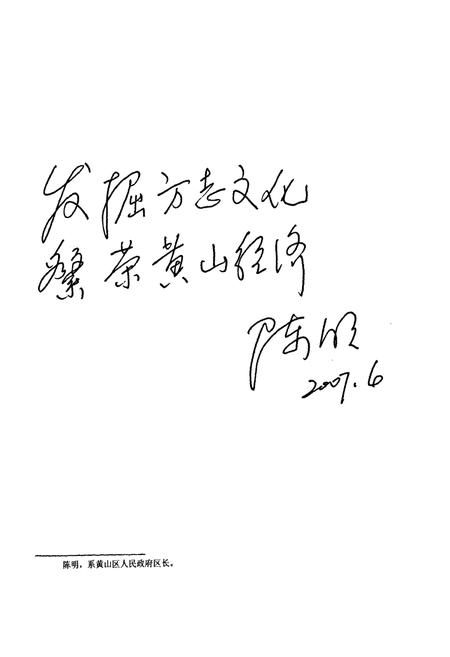 发掘方志文化
繁荣黄山经济
陈明
2007.6
陈明，系黄山区人民政府区长。